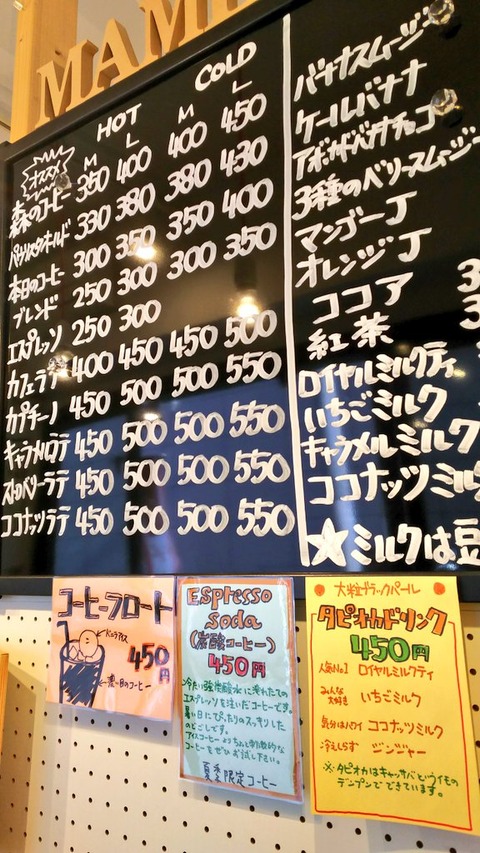 MAM
HOT COLD
M L M L
オススメ
森のコーヒー 350 400 400 450
330 380 380 430
本日のコーヒー 300 350 350 400
ブレンド 250 300 300 350
エスプレッソ 250 300
カフェラテ 400 450 450 500
カプチーノ 450 500 500 550
キャラメルラテ 450 500 500 550
ストロベリーラテ 450 500 500 550
ココナッツラテ 450 500 500 550
バナナスムージー
ケールバナナ
アボカドバナナチョコ
3種のベリースムージー
マンゴーJ
オレンジJ
ココア 3
紅茶 3
ロイヤルミルクティ
いちごミルク
キャラメルミルク
ココナッツミル
☆ミルクは豆
コーヒーフロート
450円
Espresso
soda
(炭酸コーヒー)
450円
冷たい強炭酸水に淹れたての
エスプレッソを注いだコーヒーです。
暑い日にぴったりのスッキリした
のどごしです。
アイスコーヒーよりちょっと刺激的な
コーヒーをぜひお試し下さい。
夏季限定コーヒー
大粒ブラックパール
タピオカドリンク
450円
人気No1 ロイヤルミルクティ
みんな大好き いちごミルク
気分はハワイ ココナッツミルク
冷えしらず ジンジャー
※タピオカはキャッサバというイモの
デンプンでできています。